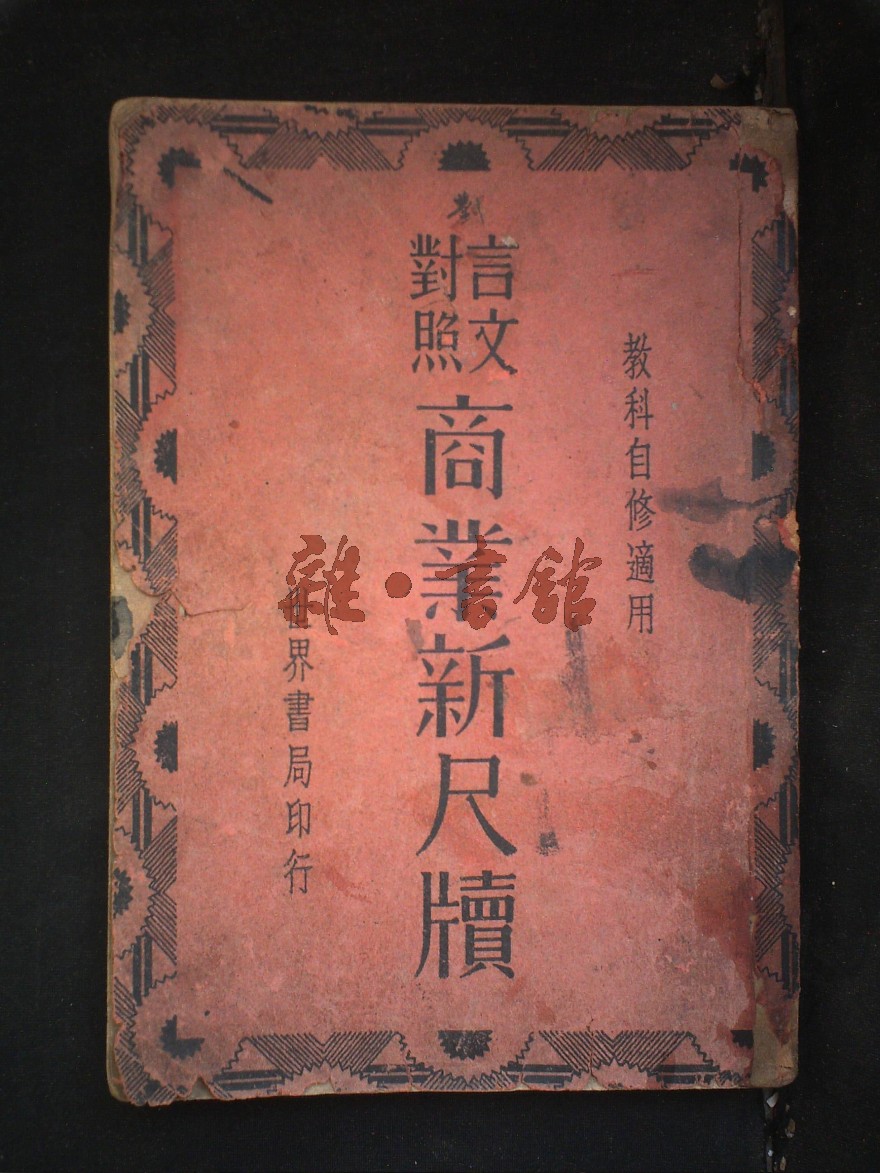 教科自修適用
言文對照
商業新尺牘
世界書局印行
對
雜·書館